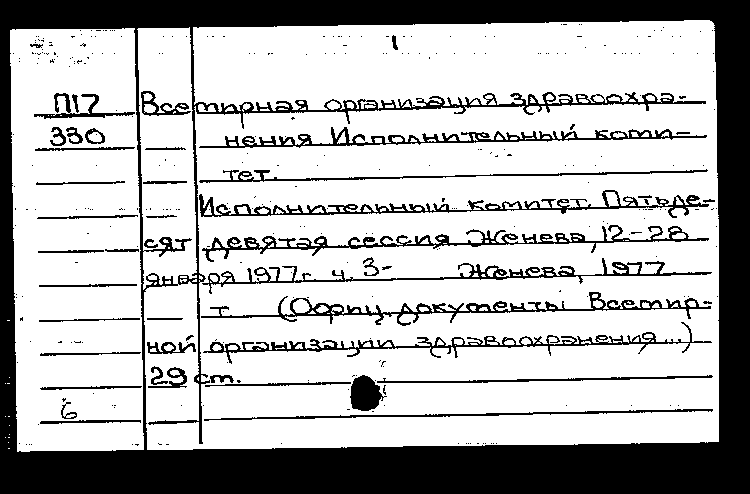 1
П17 Всемирная организация здравоохра-
330 нения Исполнительный коми-
тет.
Исполнительный комитет. Пятьде-
сят девятая сессия Женева, 12-28
января 1977г. ч. 3- Женева, 1977
т (Офиц. документы Всемир-
ной организации здравоохранения...)
29 ст.
6